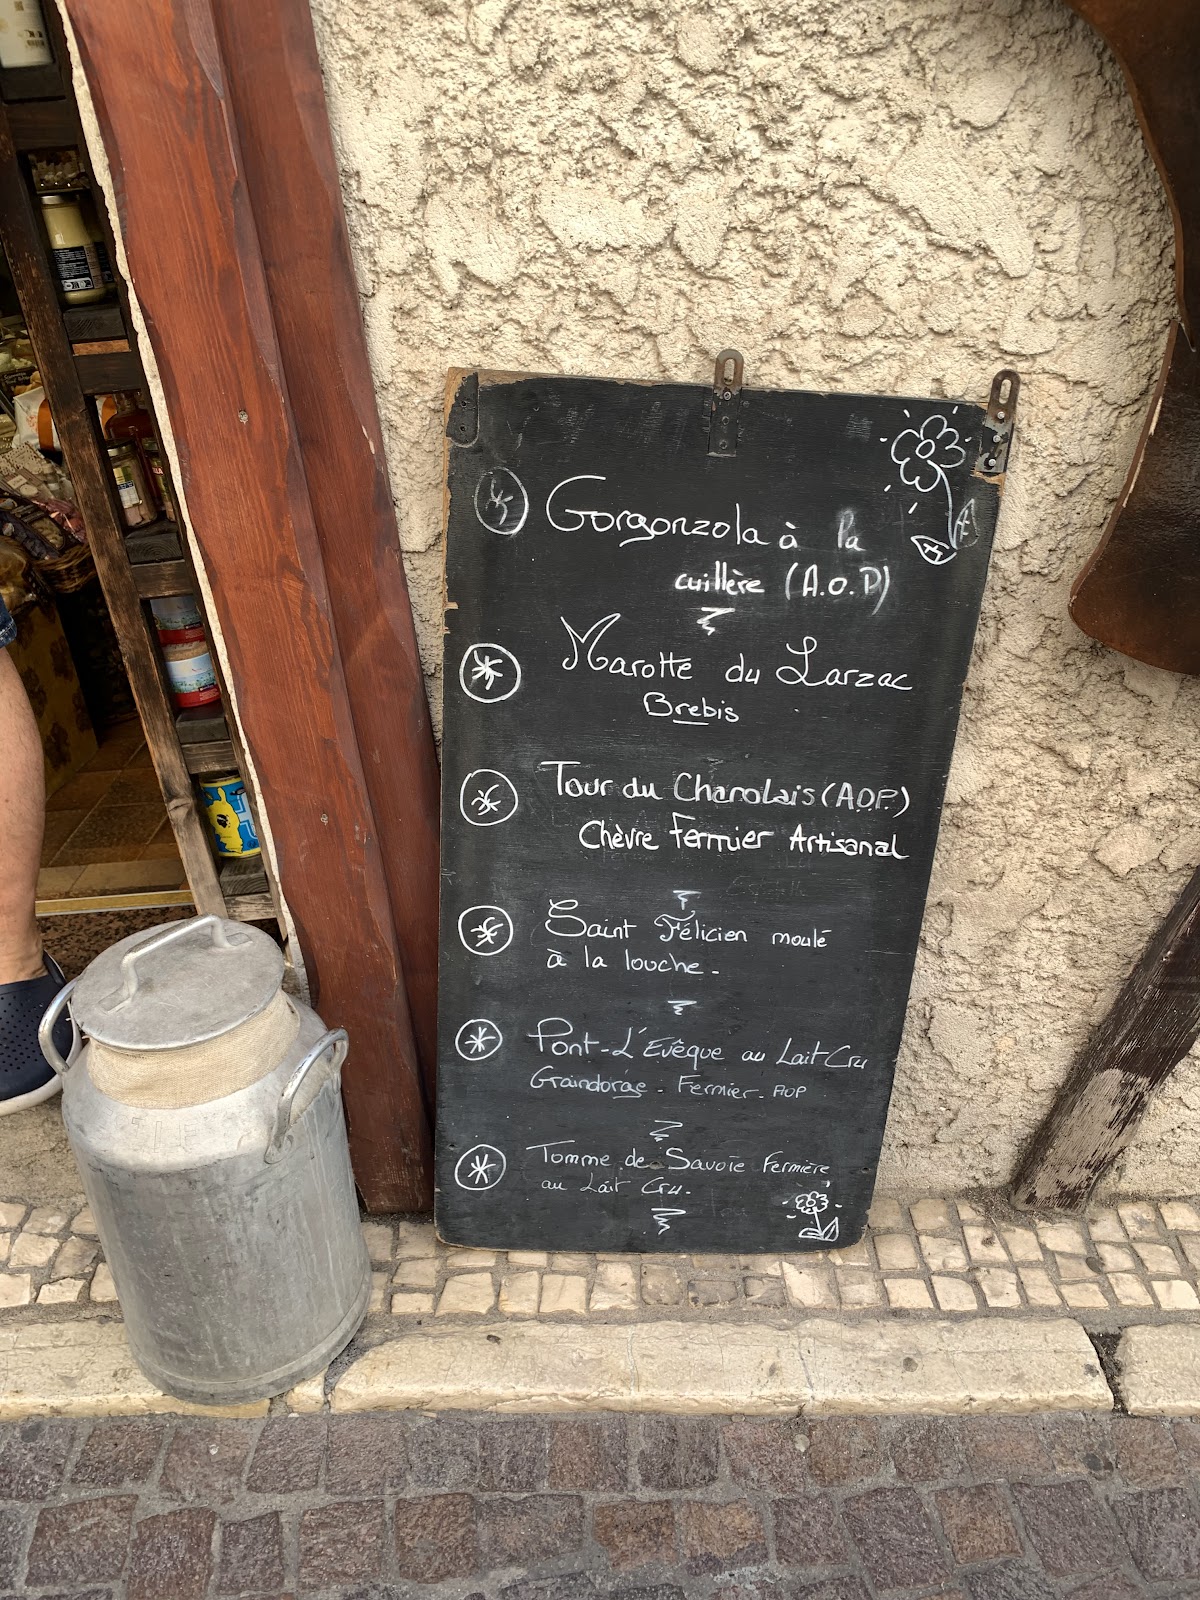 Gorgonzola à la
cuillère (A.O.P)
Marotte du Larzac
Brebis
Tour du Charolais (A.O.P.)
Chèvre Fermier Artisanal
Saint Félicien moulé
à la louche.
Pont-L'Evêque au Lait Cru
Graindorge - Fermier. AOP
Tomme de Savoie Fermière
au Lait Cru.